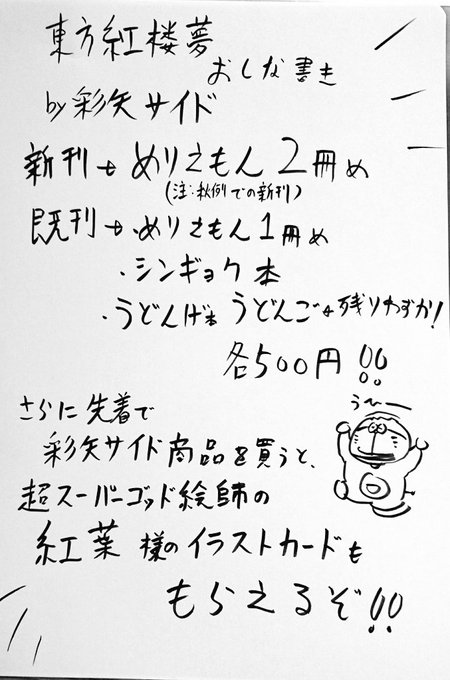 東方紅楼夢
おしな書き
by 彩矢サイド
新刊→めりえもん2冊め
(注:秋例での新刊)
既刊→・めりえもん1冊め
・シンギョク本
・うどんげ本 うどんご←残りわずか!
各500円!!
さらに先着で
彩矢サイド商品を買うと、
うー
超スーパーゴッド絵師の
紅葉様のイラストカードも
もらえるぞ!!